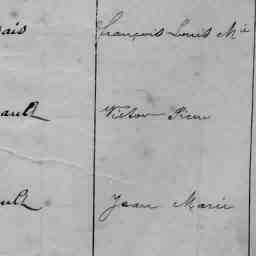 ais François Louis Mie
ault Victor Pierre
ault Jean Marie